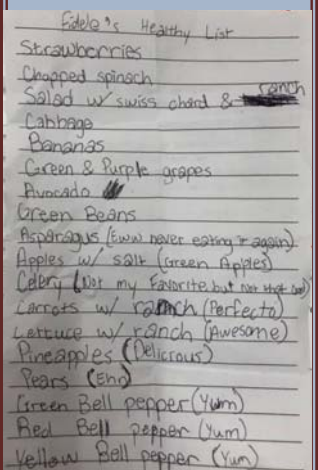 Fidele's Healthy List
Strawberries
Chopped spinach
Salad w/ swiss chard & ranch
Cabbage
Bananas
Green & Purple grapes
Avocado
Green Beans
Asparagus (Eww never eating it again)
Apples w/ salt (Green Apples)
Celery (Not my Favorite but not that bad)
Carrots w/ ranch (Perfecto)
Lettuce w/ ranch (Awesome)
Pineapples (Delicious)
Pears (Eh)
Green Bell pepper (Yum)
Red Bell pepper (Yum)
Yellow Bell pepper (Yum)